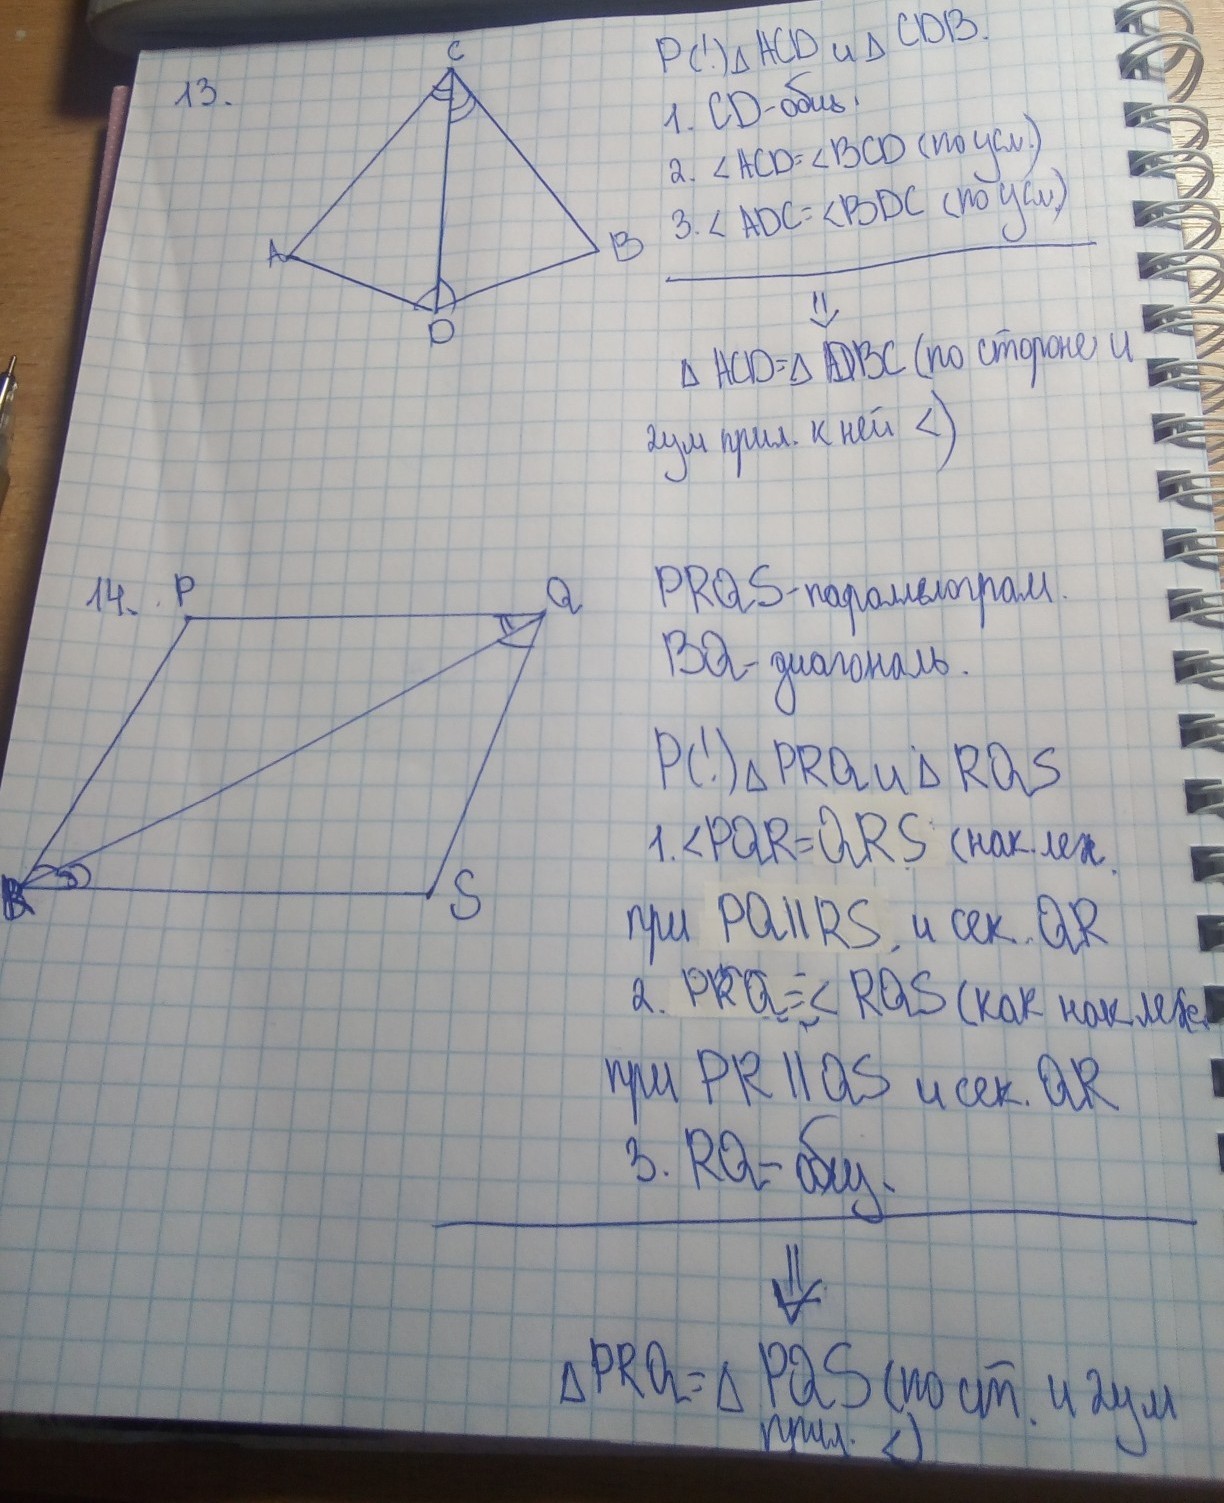 13.
C
A
B
D
P(!) △ ACD и △ CDB.
1. CD-общ.
2. <ACD=<BCD (по усл.)
3. < ADC=<BDC (по усл.)
⇓
△ ACD=△ DBC (по стороне и
2ум прил. к ней <)
14.
P
Q
R
S
PRQS-параллелограм.
BQ- диагональ.
P(!) △ PRQ и △ RQS
1. <PQR=QRS (нак.леж.
при PQ||RS, и сек. QR
2. PRQ=< RQS (как нак леж.
при PR||QS и сек. QR
3. RQ- общ.
⇓
△ PRQ=△ PQS (по ст. и 2ум
прил. <)